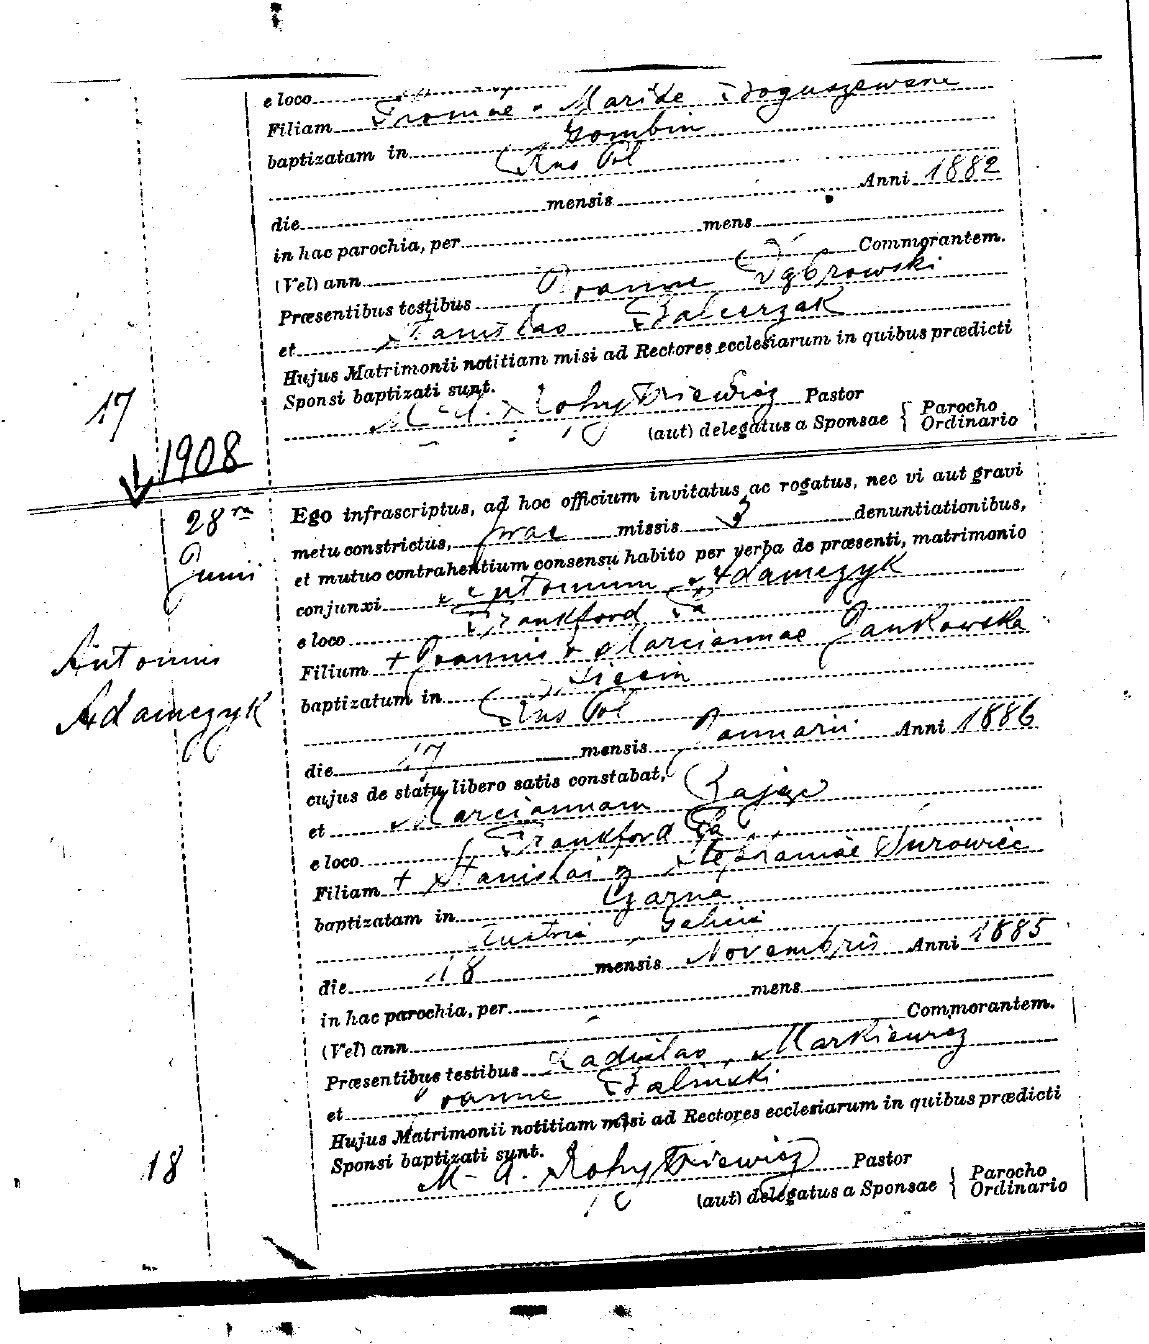 e loco
Filiam Tromae & Mariae Boguszewska
baptizatam in Gombin
Rus Pol
die mensis Anni 1882
in hac parochia, per mens
(Vel) ann Commorantem.
Præsentibus testibus Joanne Dąbrowski
et Stanislao Balcerzak
Hujus Matrimonii notitiam misi ad Rectores ecclesiarum in quibus prædicti
Sponsi baptizati sunt.
17
M. A. Kopytkiewicz Pastor
(aut) delegatus a Sponsae { Parocho
Ordinario
1908
28va
Junii
Antonius
Adamczyk
Ego infrascriptus, ad hoc officium invitatus ac rogatus, nec vi aut gravi
metu constrictus, prae missis 3 denuntiationibus,
et mutuo contrahentium consensu habito per verba de præsenti, matrimonio
conjunxi Antonium Adamczyk
e loco Frankford Pa
Filium + Joannis & Marciannae Jankowska
baptizatum in
Rus Pol
die 17 mensis Januarii Anni 1886
cujus de statu libero satis constabat,
et Marciannam Zając
e loco Frankford Pa
Filiam + Stanislai & Stephaniae Surowiec
baptizatam in Czarna
Austria Galicia
die 18 mensis Novembris Anni 1885
in hac parochia, per mens
(Vel) ann Commorantem.
Præsentibus testibus Ladislao Markiewicz
et Joanne Balinski
Hujus Matrimonii notitiam misi ad Rectores ecclesiarum in quibus prædicti
Sponsi baptizati sunt.
18
M. A. Kopytkiewicz Pastor
(aut) delegatus a Sponsae { Parocho
Ordinario